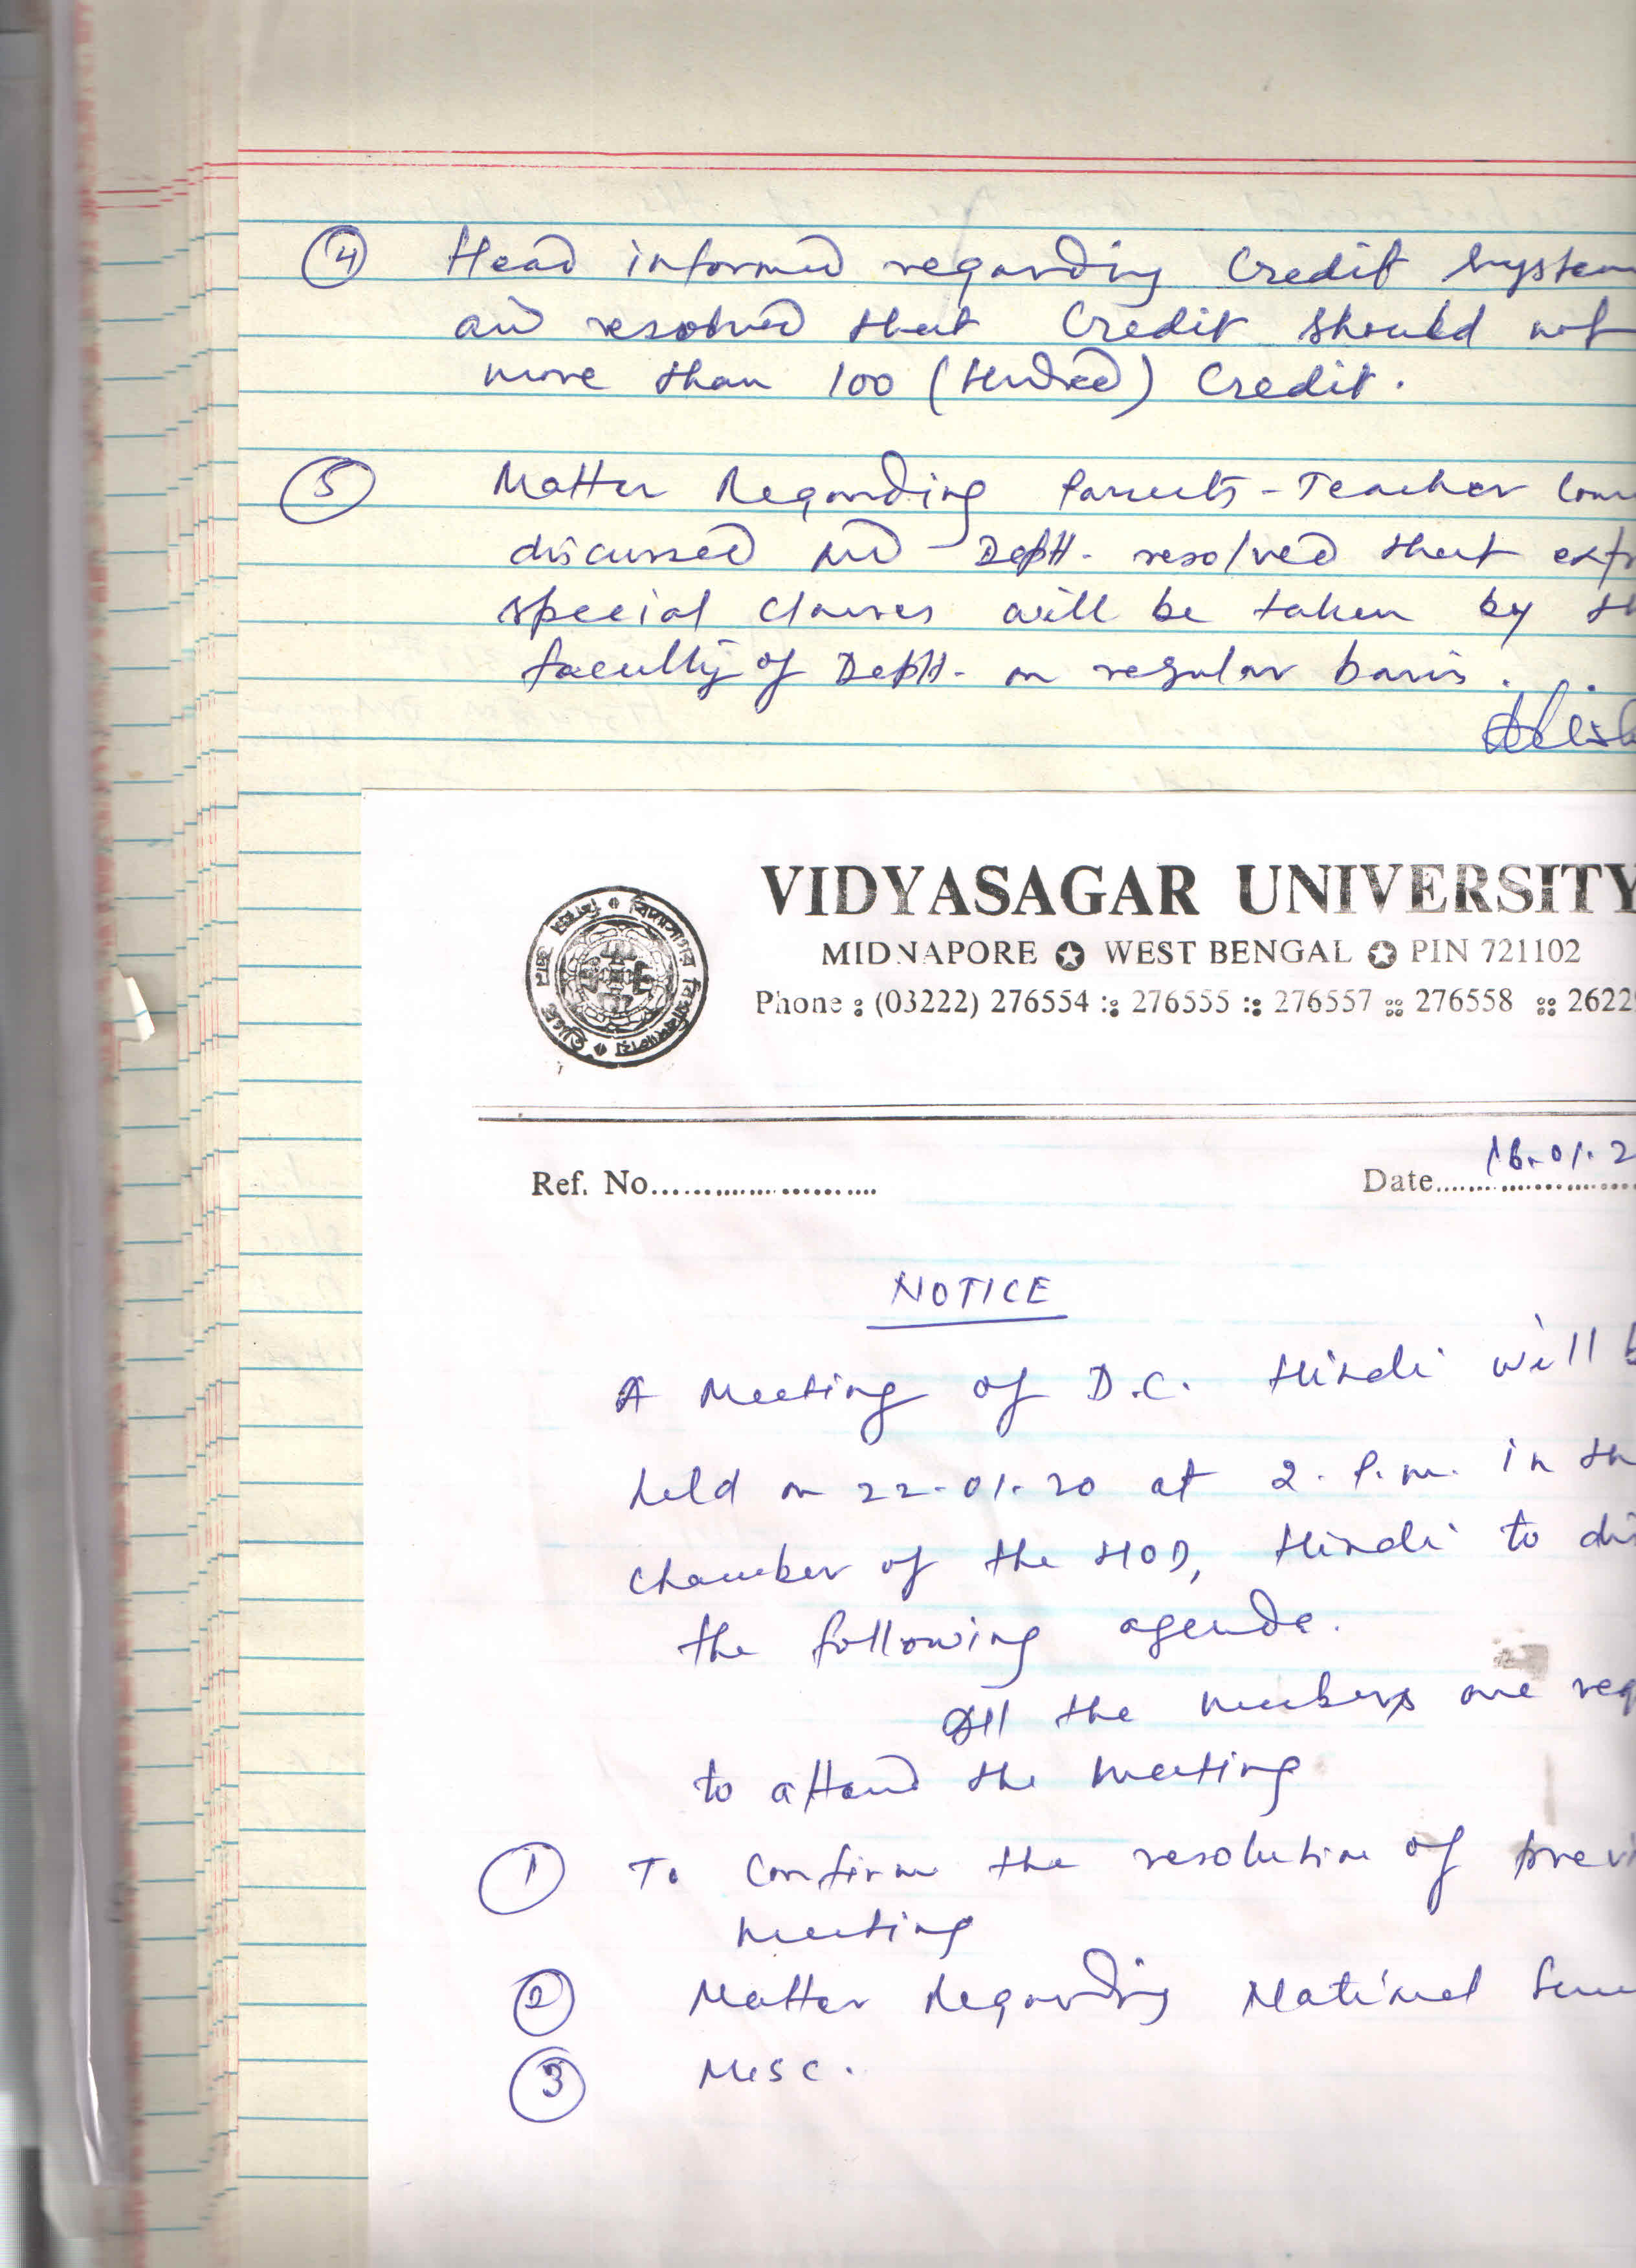 ④ Head informed regarding Credit System
and resolved that Credit should not
more than 100 (Hundred) Credit.
⑤ Matter Regarding Parents-Teacher
discussed and Deptt. resolved that
special classes will be taken by
faculty of Deptt. on regular basis.
VIDYASAGAR UNIVERSITY
MIDNAPORE ✪ WEST BENGAL ✪ PIN 721102
Phone : (03222) 276554 :: 276555 :: 276557 :: 276558 :: 2622
Ref. No........................
Date........ 16.01.2
NOTICE
A Meeting of D.C. Hindi will
held on 22-01-20 at 2. P.m. in
chamber of the HOD, Hindi to
the following agenda.
All the members are
to attend the meeting
① To Confirm the resolution of
meeting
② Matter Regarding National
③ Misc.